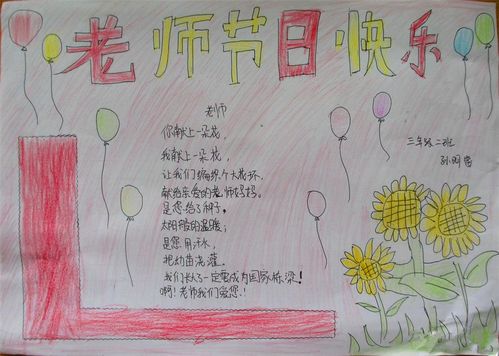 老师节日快乐
老师
你献上一朵花，
我献上一朵花，
让我们编织个大花环.
献给亲爱的老师妈妈。
是您给了种子。
太阳般的温暖；
是您用汗水，
把幼苗浇灌。
我们长大了一定要成为国家栋梁！
啊！老师我们爱您！
三年级二班
孙明